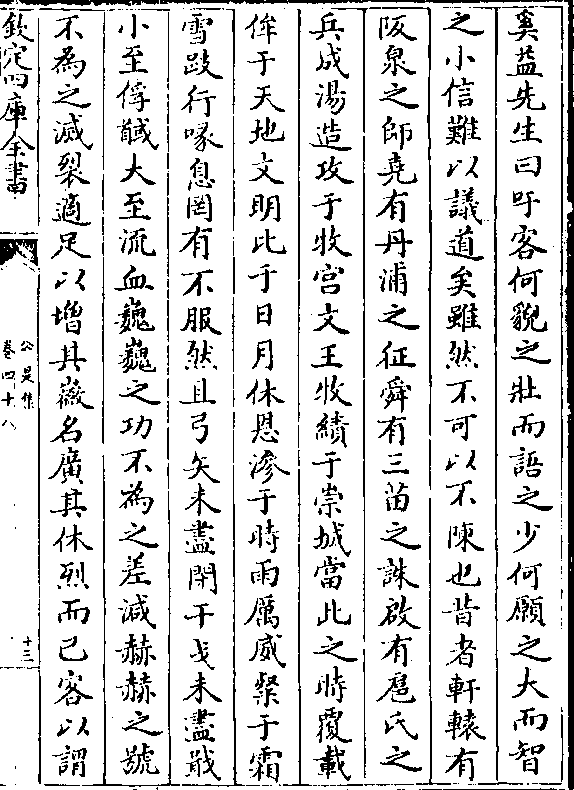 奚益先生曰吁客何貌之壯而語之少何願之大而智
之小信難以議道矣雖然不可以不陳也昔者軒轅有
阪泉之師堯有丹浦之征舜有三苗之誅啟有扈氏之
兵成湯造攻于牧宫文王收績于崇城當此之時覆載
侔于天地文明比于日月休恩滲于時雨厲威粲于霜
雪跂行喙息罔有不服然且弓矢未盡閉干戈未盡戢
小至俘馘大至流血巍巍之功不為之差減赫赫之號
不為之滅裂適足以增其㣲名廣其休烈而已客以謂
欽定四庫全書
公是集
卷四十八
十三